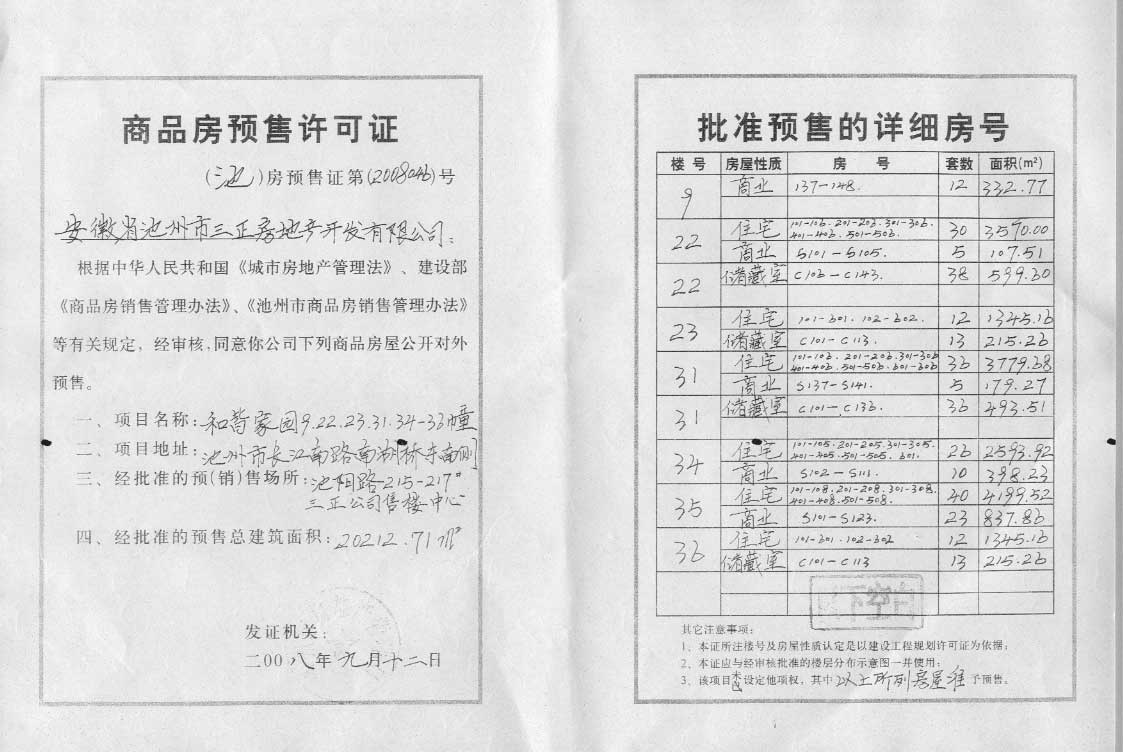 商品房预售许可证
(池)房预售证第(2008046)号
安徽省池州市三正房地产开发有限公司:
根据中华人民共和国《城市房地产管理法》、建设部
《商品房销售管理办法》、《池州市商品房销售管理办法》
等有关规定，经审核,同意你公司下列商品房屋公开对外
预售。
一、项目名称:和谐家园9.22.23.31.34-36幢
二、项目地址:池州市长江南路南湖桥东南侧
三、经批准的预(销)售场所:池阳路215-217#
三正公司售楼中心
四、经批准的预售总建筑面积:20212.71㎡
发证机关:
二00八年九月十二日
批准预售的详细房号
楼号 房屋性质 房号 套数 面积(m²)
9 商业 137-148. 12 332.77
22 住宅 101-106.201-206.301-306.401-406.501-506. 30 3590.00
商业 S101-S105. 5 107.51
22 储藏室 C106-C143. 38 599.30
23 住宅 101-601.102-602. 12 1345.16
储藏室 C101-C113. 13 215.26
31 住宅 101-106.201-206.301-306.401-406.501-506.601-606 36 3779.68
商业 S137-S141. 5 179.27
31 储藏室 C101-C136. 36 493.51
34 住宅 101-105.201-205.301-305.401-405.501-505.601. 26 2593.92
商业 S102-S111. 10 398.23
35 住宅 101-108.201-208.301-308.401-408.501-508. 40 4199.52
商业 S101-S123. 23 837.86
36 住宅 101-601.102-602 12 1345.16
储藏室 C101-C113 13 215.26
其它注意事项:
1、本证所注楼号及房屋性质认定是以建设工程规划许可证为依据;
2、本证应与经审核批准的楼层分布示意图一并使用;
3、该项目未设定他项权，其中以上所列房屋准予预售。